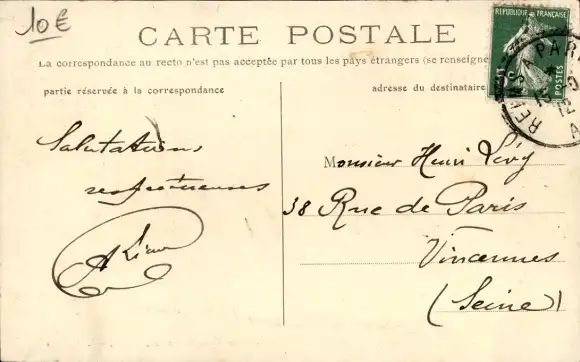 10€
CARTE POSTALE
RÉPUBLIQUE FRANÇAISE
POSTES
La correspondance au recto n'est pas acceptée par tous les pays étrangers (se renseigne
partie réservée à la correspondance
adresse du destinataire
Salutations
respectueuses
Monsieur Henri Lévy
38 Rue de Paris
Vincennes
(Seine)